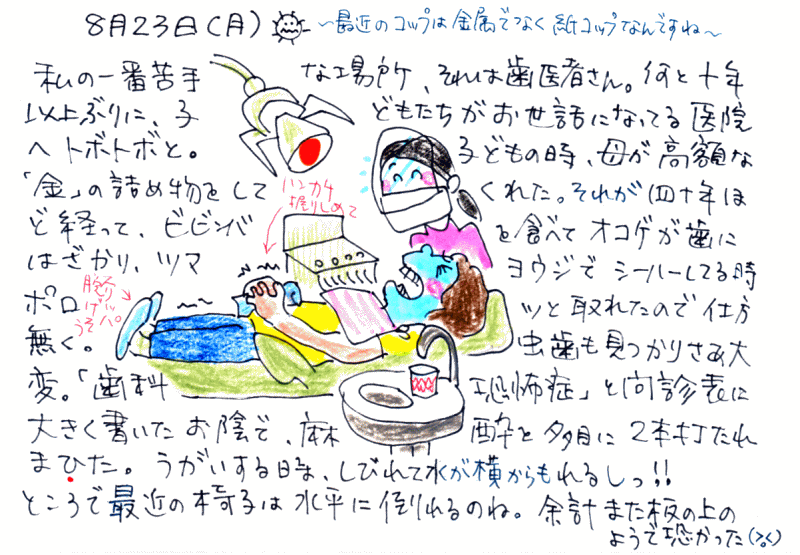 8月23日(月) ～最近のコップは金属でなく紙コップなんですね～
私の一番苦手な場所、それは歯医者さん。何と十年
以上ぶりに、子どもたちがお世話になってる医院
へトボトボと。子どもの時、母が高額な
「金」の詰め物をしてくれた。それが四十年ほ
ど経って、ビビンバを食べてオコゲが歯に
はざかり、ツマヨウジでシーハーしてる時
ポロッと取れたので仕方
無く。虫歯も見つかりさあ大
変。「歯科恐怖症」と問診表に
大きく書いたお陰で、麻酔を多目に2本打たれ
まひた。うがいする時、しびれて水が横からもれるしっ!!
ところで最近の椅子は水平に倒れるのね。余計また板の上の
ようで恐かった(>_<)
ハンカチ
握りしめて